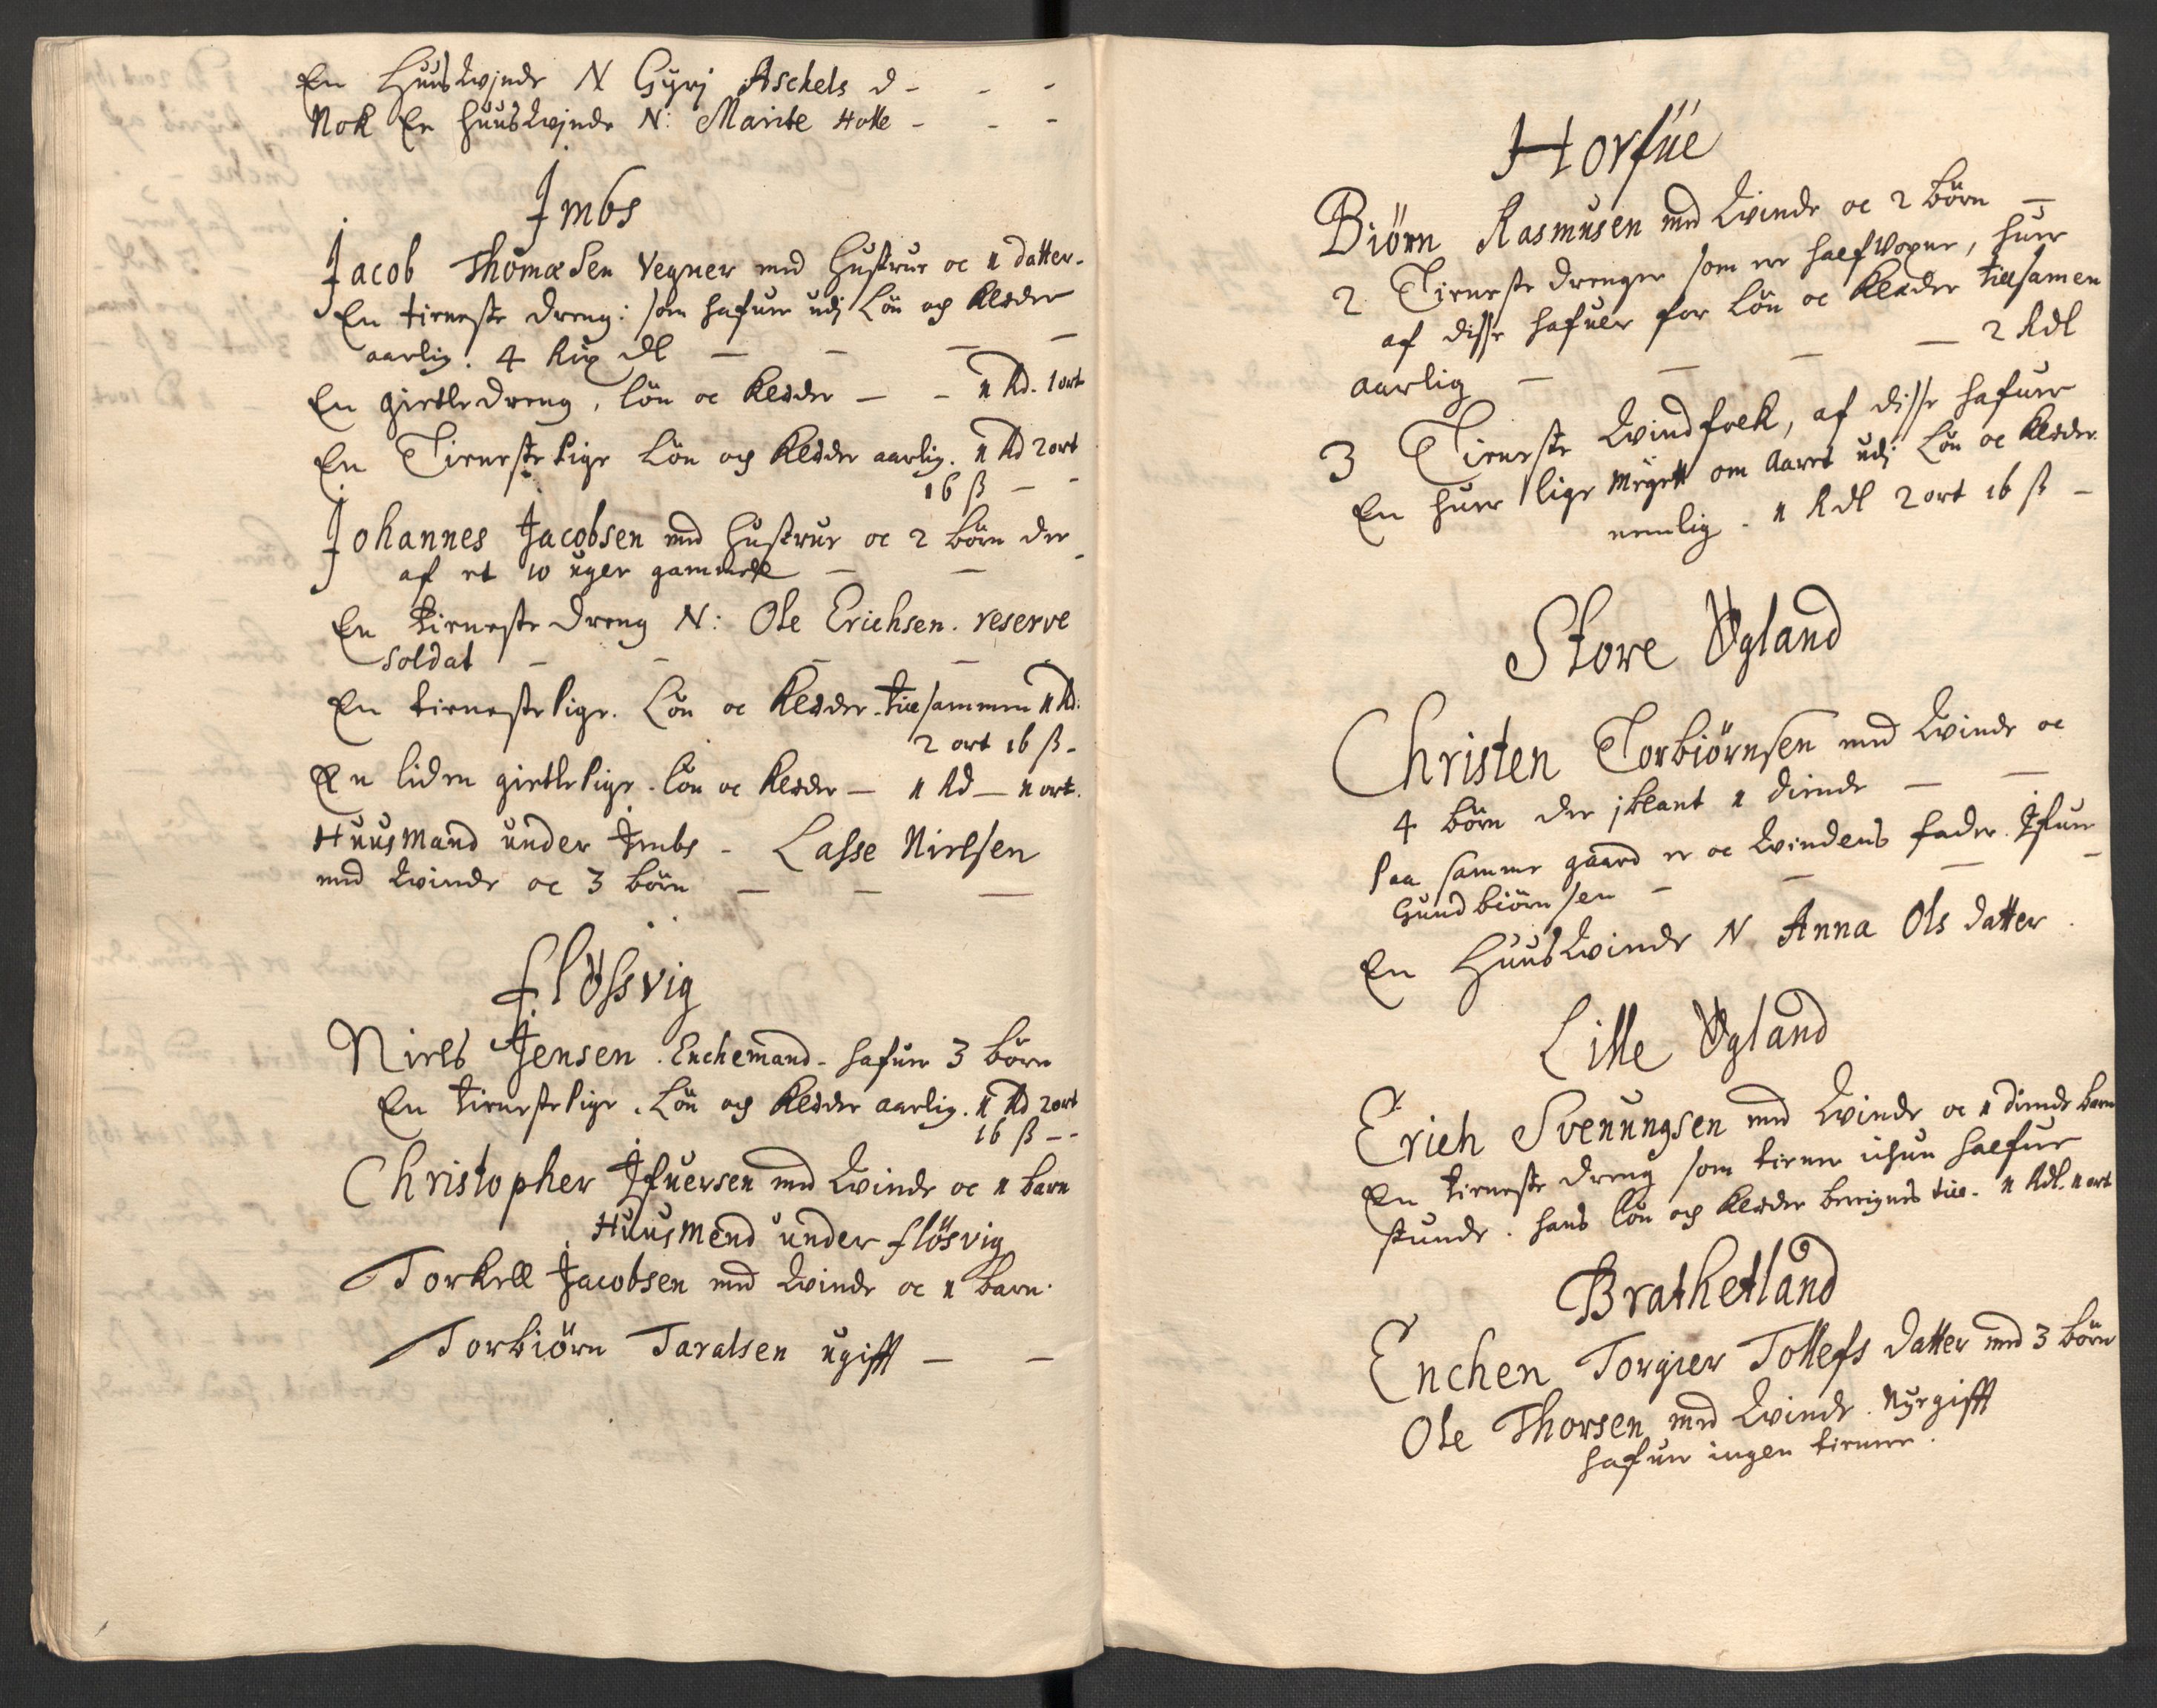 En HuusKvinde N Gyrj Aschels d - - -
Nok En huusKvinde N: Marite Holle - - -
Jmbs
Jacob Thomæsen Vegner med hustrue oc 1 datter -
En tieneste dreng: som hafuer udj Lön og Klæder
aarlig. 4 Rix dl - - - -
En gietledreng, lön oc Klæder - - 1 Rd. 1 ort
En Tieneste Pige Lön og Klæder aarlig. 1 Rd 2 ort
16 ß - -
Johannes Jacobsen med hustrue oc 2 börn der
af et 10 uger gammell - - -
En tieneste dreng N: Ole Erichsen. reserve
Soldat - - - - -
En tieneste Pige. Lön oc Klæder tilsammen 1 Rd:
2 ort 16 ß -
En liden gietle Pige. lön oc Klæder - 1 Rd - 1 ort.
Huusmand under Jmbs - Lasse Nielsen
med Kvinde oc 3 börn - - -
Flössvig
Niels Jensen. Enchemand - hafuer 3 börn
En tieneste Pige. Lön og Klæder aarlig. 1 Rd 2 ort
16 ß - -
Christopher Jfuersen med Kvinde oc 1 barn
Huusmend under flösvig
Torkell Jacobsen med Kvinde oc 1 barn.
Torbiörn Taralsen ugifft - -
Horfue
Biörn Rasmusen med Kvinde oc 2 börn -
2 Tieneste drenger som er halfvoxne, huer
af disse hafuer for Lön oc Klæder tilsamen
aarlig - - - - 2 Rdl
3 Tieneste Kvindfolk, af disse hafuer
En huer lige meget om Aaret udj Lön oc Klæder
nemlig - 1 Rdl 2 ort 16 ß -
Store Ugland
Christen Torbiörnsen med Kvinde oc
4 börn der jblant 1 diende - -
Paa samme gaard er oc Kvindens fader. Jfuer
Gundbiörnsen - - - -
En HuusKvinde N Anna Ols datter.
Lille Ugland
Erich Svenungsen med Kvinde oc 1 diende barn
En tieneste dreng som tiener ichun halfue
stunde. hans lön og Klæder beregnes til. 1 Rdl. 1 ort
Brathetland
Enchen Torgier Tollefs datter med 3 börn
Ole Thorsen med Kvinde. Nye gifft
hafuer ingen tiener.